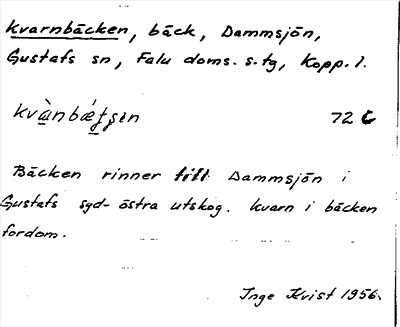 Kvarnbäcken, bäck, Dammsjön,
Gustafs sn, Falu doms. s. tg, Kopp. l.
72 C
Bäcken rinner till Dammsjön i
Gustafs syd-östra utskog. Kvarn i bäcken
fordom.
Inge Kvist 1956.